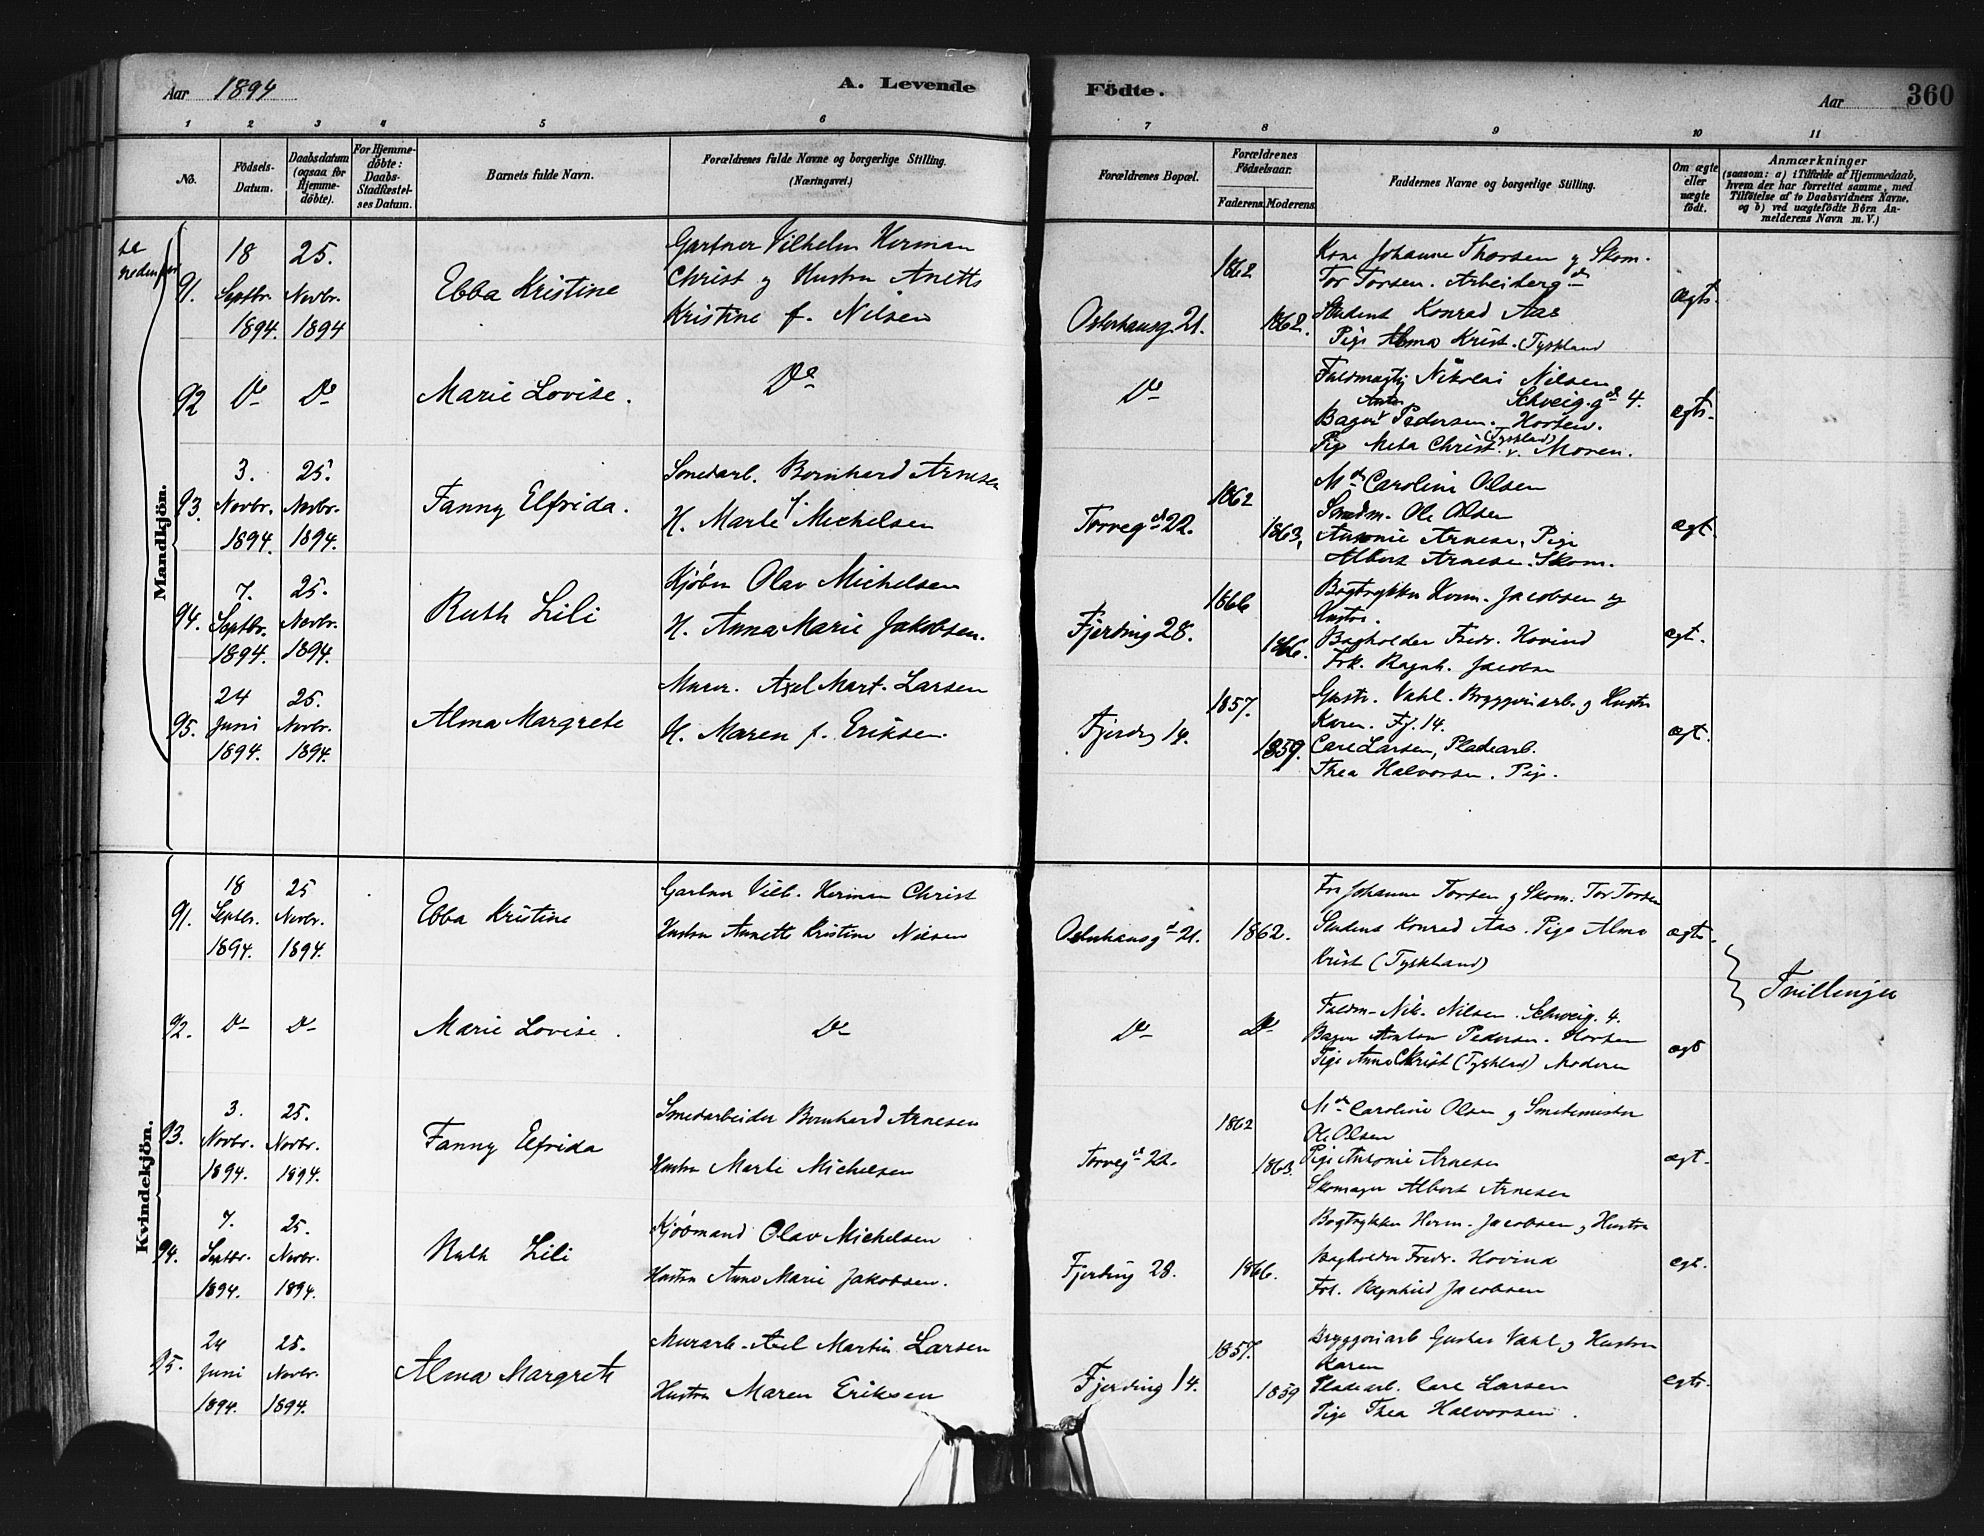 Aar 1894
A. Levende Födte.
Aar 360
1 2 3 4 5 6 7 8 9 10 11
No.
Födsels-
Datum.
Daabsdatum
(ogsaa for
Hjemme-
döbte).
For Hjemme-
döbte:
Daabs-
Stadfæstel-
ses Datum.
Barnets fulde Navn.
Forældrenes fulde Navne og borgerlige Stilling.
(Næringsvei.)
Forældrenes Bopæl.
Forældrenes
Födselsaar.
Faderens. Moderens.
Faddernes Navne og borgerlige Stilling.
Om ægte
eller
uægte
født.
Anmærkninger
(saasom: a) i Tilfælde af Hjemmedaab,
hvem der har forrettet samme, med
Tilföielse af to Daabsvidners Navne.
og b) ved uægtefödte Börn An-
melderens Navn m. V.)
Mandkjön.
se
nedenfor
91.
18
Septbr.
1894.
25.
Novbr.
1894
Ebba Kristine
Gartner Vilhelm Herman
Christ og Hustru Anette
Kristine f. Nilsen
Osterhausg. 21.
1862
1862.
Kone Johanne Thorsen og Skom.
Tor Torsen. Arbeiderg.
Student Konrad Aas
Pige Alma Krist. (Tyskland
Ægte.
92
Do
Do
Marie Lovise.
Do
Do
Fuldmægtig Nikolai Nilsen
Schweig.gd 4.
Bager Anton Pedersen. Horten.
Pige Meta Christ. (Tyskland) Moren.
ægte.
93.
3.
Novbr.
1894.
25.
Novbr.
1894.
Fanny Elfrida.
Smedarb. Bernhard Arnesen
H. Marte f. Michelsen
Torvegd 22.
1862
1863,
Md Caroline Olsen
Smedm. Ole Olsen
Antonie Arnesen, Pige
Albert Arnesen. Skom.
ægt.
94.
7.
Septbr.
1894.
25.
Novbr.
1894.
Ruth Lili
Kjøbm Olav Michelsen
H. Anna Marie Jakobsen.
Fjerding 28.
1866
1866.
Bogtrykker Herm. Jacobsen og
Hustru.
Bogholder Fredr. Hovind
Frk. Ragnh. Jacobsen
ægt.
95.
24
Juni
1894.
25.
Novbr.
1894.
Alma Margrete
Murer. Axel Mart. Larsen
H. Maren f. Eriksen.
Fjerding 14.
1857.
1859.
Gust. Vahl. Bryggeriarb. og Hustru
Karen. Fj. 14.
Carl Larsen, Pladearb.
Thea Halvorsen. Pige.
ægt.
Kvindekjön.
91.
18
Septbr.
1894.
25
Novbr.
1894.
Ebba Kristine
Gartner Vilh. Herman Christ
Hustru Annette Kristine Nilsen
Osterhausgd 21.
1862.
Fru Johanne Torsen og Skom. Tor Torsen
Student Konrad Aas. Pige Alma
Krist (Tyskland)
ægte.
Tvillinger
92.
Do
Do
Marie Lovise.
Do
Do
Do
Fuldm. Nik. Nilsen. Schweig. 4.
Bager Anton Pedersen. Horten
Pige Anna Christ (Tyskland) Moderen
ægt
93.
3.
Novbr.
1894.
25.
Novbr.
1894.
Fanny Elfrida
Smedarbeider Bernhard Arnesen
Hustru Marte Michelsen
Torvegd 22.
1862
1863.
Md Caroline Olsen og Smedemester
Ole Olsen
Pige Antonie Arnesen
Skomager Albert Arnesen
ægt.
94.
7.
Septbr.
1894.
25.
Novbr.
1894.
Ruth Lili
Kjøbmand Olav Michelsen
Hustru Anna Marie Jakobsen.
Fjerding 28.
1866.
Bogtrykker Herm. Jacobsen og Hustru
Bogholder Fredr. Hovind
Frk. Ragnhild Jacobsen
ægt.
95.
24
Juni
1894.
25.
Novbr.
1894.
Alma Margrete
Murarb. Axel Martin Larsen
Hustru Maren Eriksen
Fjerding 14.
1857.
1859
Bryggeriarb Gustav Vahl og Hustru
Karen
Pladearb. Carl Larsen
Pige Thea Halvorsen.
ægte.